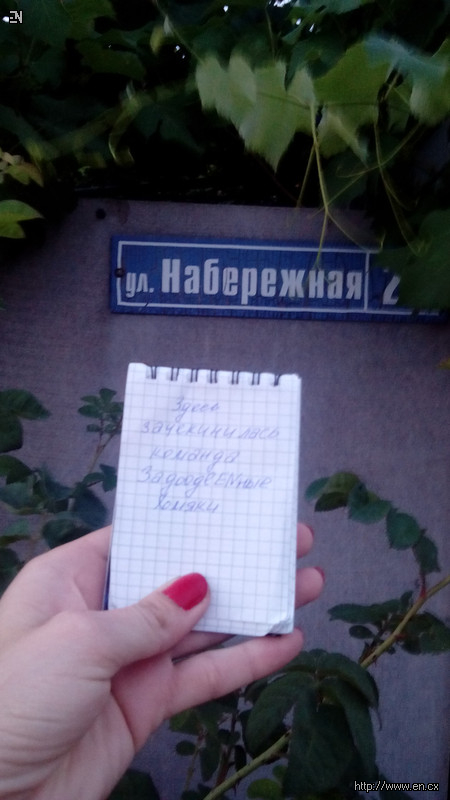 EN
ул. Набережная 2
Здесь
зачекинилась
команда
хомяки
http://www.en.cx